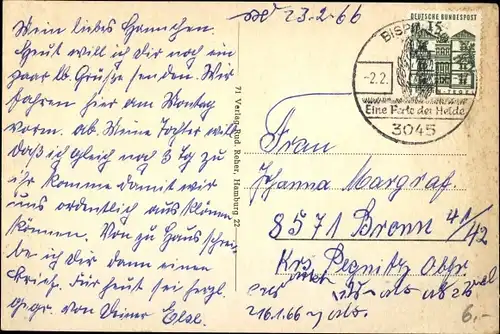 Mein liebes Hannchen.
Heut will ich Dir noch ein
paar lb. Grüße senden. Wir
fahren hier am Montag
vorm. ab. Meine Tochter will
daß ich gleich noch 3 Tg zu
ihr komme damit wir
uns ordentlich aus klönen
können. Von zu Haus schrei-
be ich Dir dann einen
Brief. Für heut sei herzl.
gegr. von Deiner Else.
71 Verlag Rud. Reher, Hamburg 22
23.2.66
DEUTSCHE BUNDESPOST
15
BISP
-2.2.
Eine Perle der Heide
3045
Frau
Johanna Margraf.
8571 Bronn 41/42
Krs Pegnitz Obfr.
26.1.66
6.-